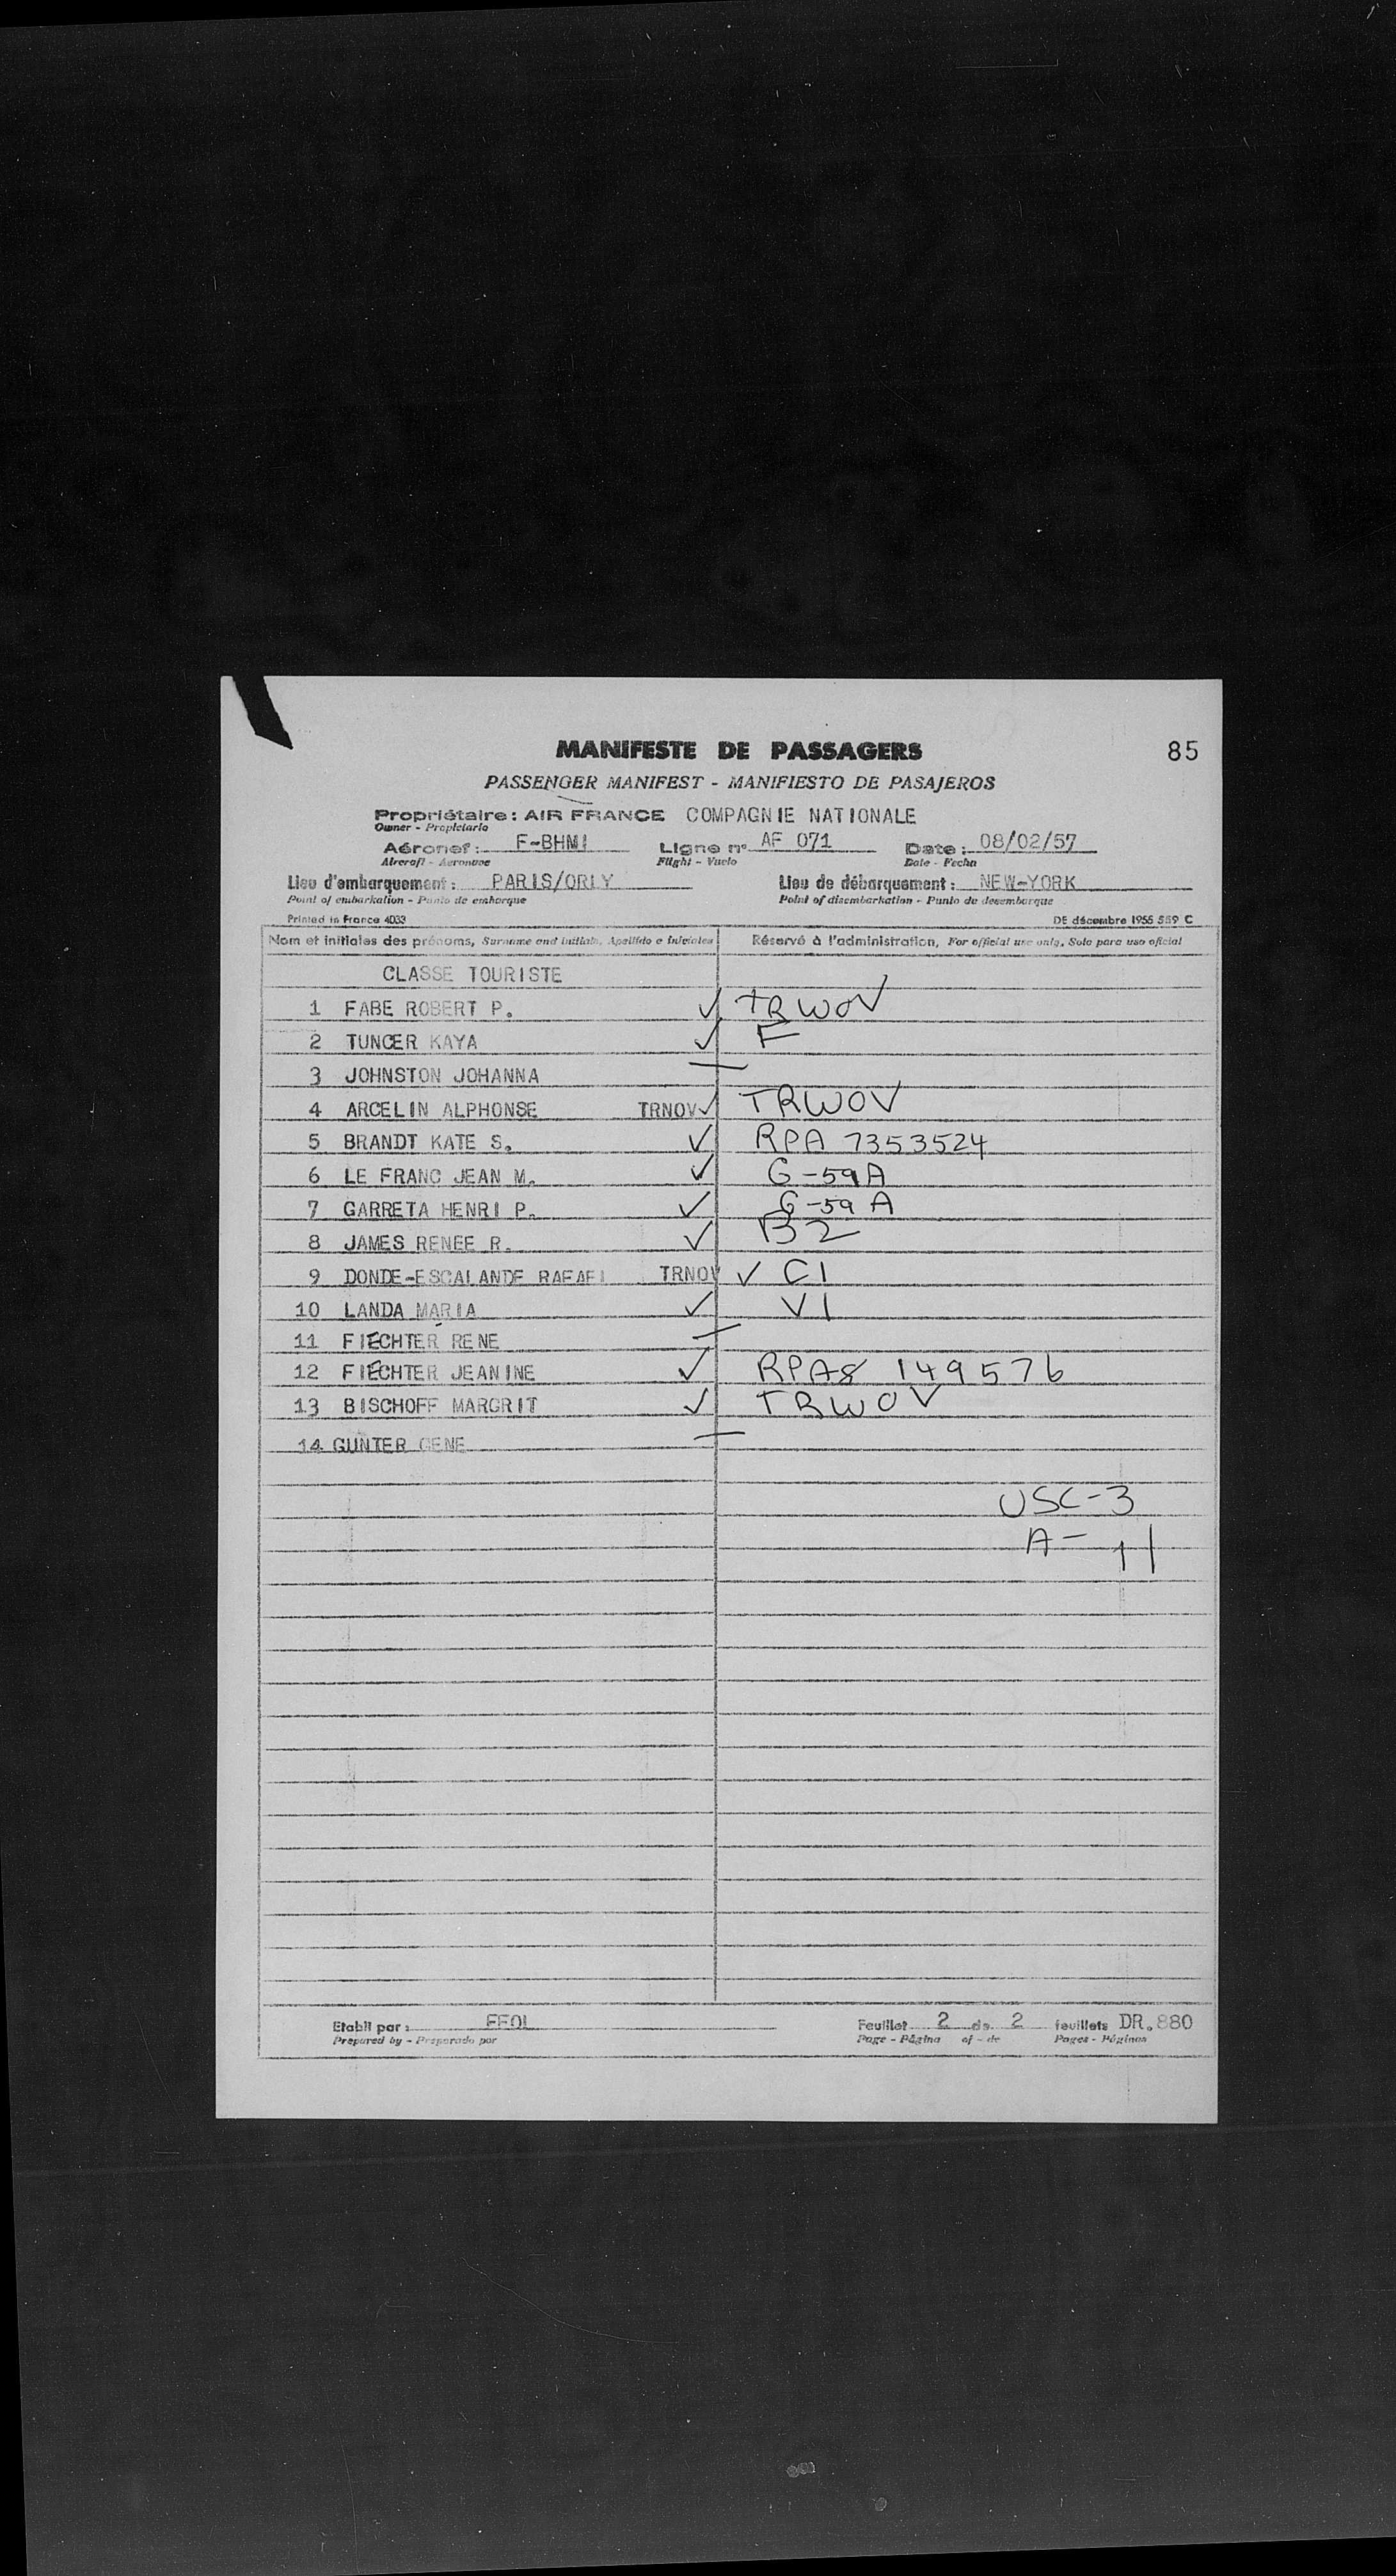 MANIFESTE DE PASSAGERS 85
PASSENGER MANIFEST - MANIFIESTO DE PASAJEROS
Propriétaire : AIR FRANCE COMPAGNIE NATIONALE
Owner - Propietario
Aéronef : F-BHMI Ligne n° AF 071 Date : 08/02/57
Aircraft - Aeronave Flight - Vuelo Date - Fecha
Lieu d'embarquement : PARIS/ORLY Lieu de débarquement : NEW-YORK
Point of embarkation - Punto de embarque Point of disembarkation - Punto de desembarque
Printed in France 4033 DE décembre 1955 589 C
Nom et initiales des prénoms, Surname and initials, Apellido e iniciales Réservé à l'administration, For official use only, Solo para uso oficial
CLASSE TOURISTE
1 FABE ROBERT P. ✓ TRWOV
2 TUNCER KAYA ✓ F
3 JOHNSTON JOHANNA —
4 ARCELIN ALPHONSE TRNOV ✓ TRWOV
5 BRANDT KATE S. ✓ RPA 7353524
6 LE FRANC JEAN M. ✓ G-59A
7 GARRETA HENRI P. ✓ G-59 A
8 JAMES RENEE R. ✓ B2
9 DONDE-ESCALANDE RAFAEL TRNOV ✓ C1
10 LANDA MARIA ✓ V1
11 FIECHTER RENE —
12 FIECHTER JEANINE ✓ RPA8 149576
13 BISCHOFF MARGRIT ✓ TRWOV
14 GUNTER GENE —
USC-3
A- 11
Etabli par : FFOL Feuillet 2 de 2 feuillets DR.880
Prepared by - Preparado por Page - Página of - de Pages - Páginas